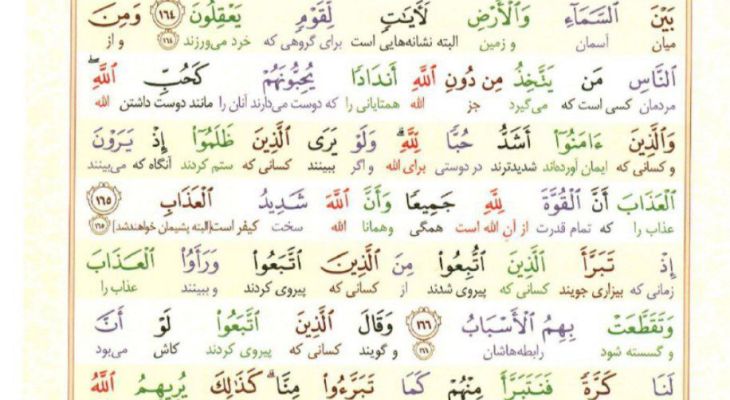 بَيْنَ ٱلسَّمَآءِ وَٱلْأَرْضِ لَـَٔايَـٰتٍ لِّقَوْمٍ يَعْقِلُونَ ١٦٤ وَمِنَ
میان آسمان و زمین البته نشانه‌هایی است برای گروهی که خرد می‌ورزند ١٦٤ و از
ٱلنَّاسِ مَن يَتَّخِذُ مِن دُونِ ٱللَّهِ أَندَادًا يُحِبُّونَهُمْ كَحُبِّ ٱللَّهِ ۖ
مردمان کسی است که می‌گیرد جز الله همتایانی را که دوست می‌دارند آنان را مانند دوست داشتن الله
وَٱلَّذِينَ ءَامَنُوٓا۟ أَشَدُّ حُبًّا لِّلَّهِ ۗ وَلَوْ يَرَى ٱلَّذِينَ ظَلَمُوٓا۟ إِذْ يَرَوْنَ
و کسانی که ایمان آورده‌اند شدیدترند در دوستی برای الله و اگر ببینند کسانی که ستم کردند آنگاه که می‌بینند
ٱلْعَذَابَ أَنَّ ٱلْقُوَّةَ لِلَّهِ جَمِيعًا وَأَنَّ ٱللَّهَ شَدِيدُ ٱلْعَذَابِ ١٦٥
عذاب را که تمام قدرت از آنِ الله است همگی وهمانا الله سخت کیفر است[البته پشیمان خواهندشد] ١٦٥
إِذْ تَبَرَّأَ ٱلَّذِينَ ٱتُّبِعُوا۟ مِنَ ٱلَّذِينَ ٱتَّبَعُوا۟ وَرَأَوُا۟ ٱلْعَذَابَ
زمانی که بیزاری جویند کسانی که پیروی شدند از کسانی که پیروی کردند و ببینند عذاب را
وَتَقَطَّعَتْ بِهِمُ ٱلْأَسْبَابُ ١٦٦ وَقَالَ ٱلَّذِينَ ٱتَّبَعُوا۟ لَوْ أَنَّ
و گسسته شود رابطه‌هاشان ١٦٦ و گویند کسانی که پیروی کردند کاش می‌بود
لَنَا كَرَّةً فَنَتَبَرَّأَ مِنْهُمْ كَمَا تَبَرَّءُوا۟ مِنَّا ۗ كَذَٰلِكَ يُرِيهِمُ ٱللَّهُ